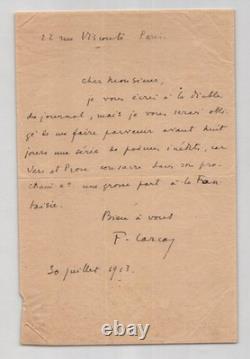 22 rue Visconti Paris.
Cher Monsieur,
je vous écris à la diable
du journal, mais je vous serai obli-
gé de me faire parvenir avant huit
jours une série de poèmes inédits, car
Vers et Prose consacre dans son pro-
chain n° une grosse part à la Fan-
taisie.
Bien à vous
F. Carco
30 juillet 1913.
222 © ttuu.com